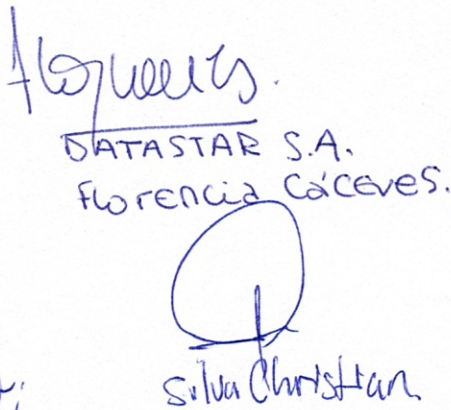 DATASTAR S.A.
Florencia Cáceres.
Silva Christian